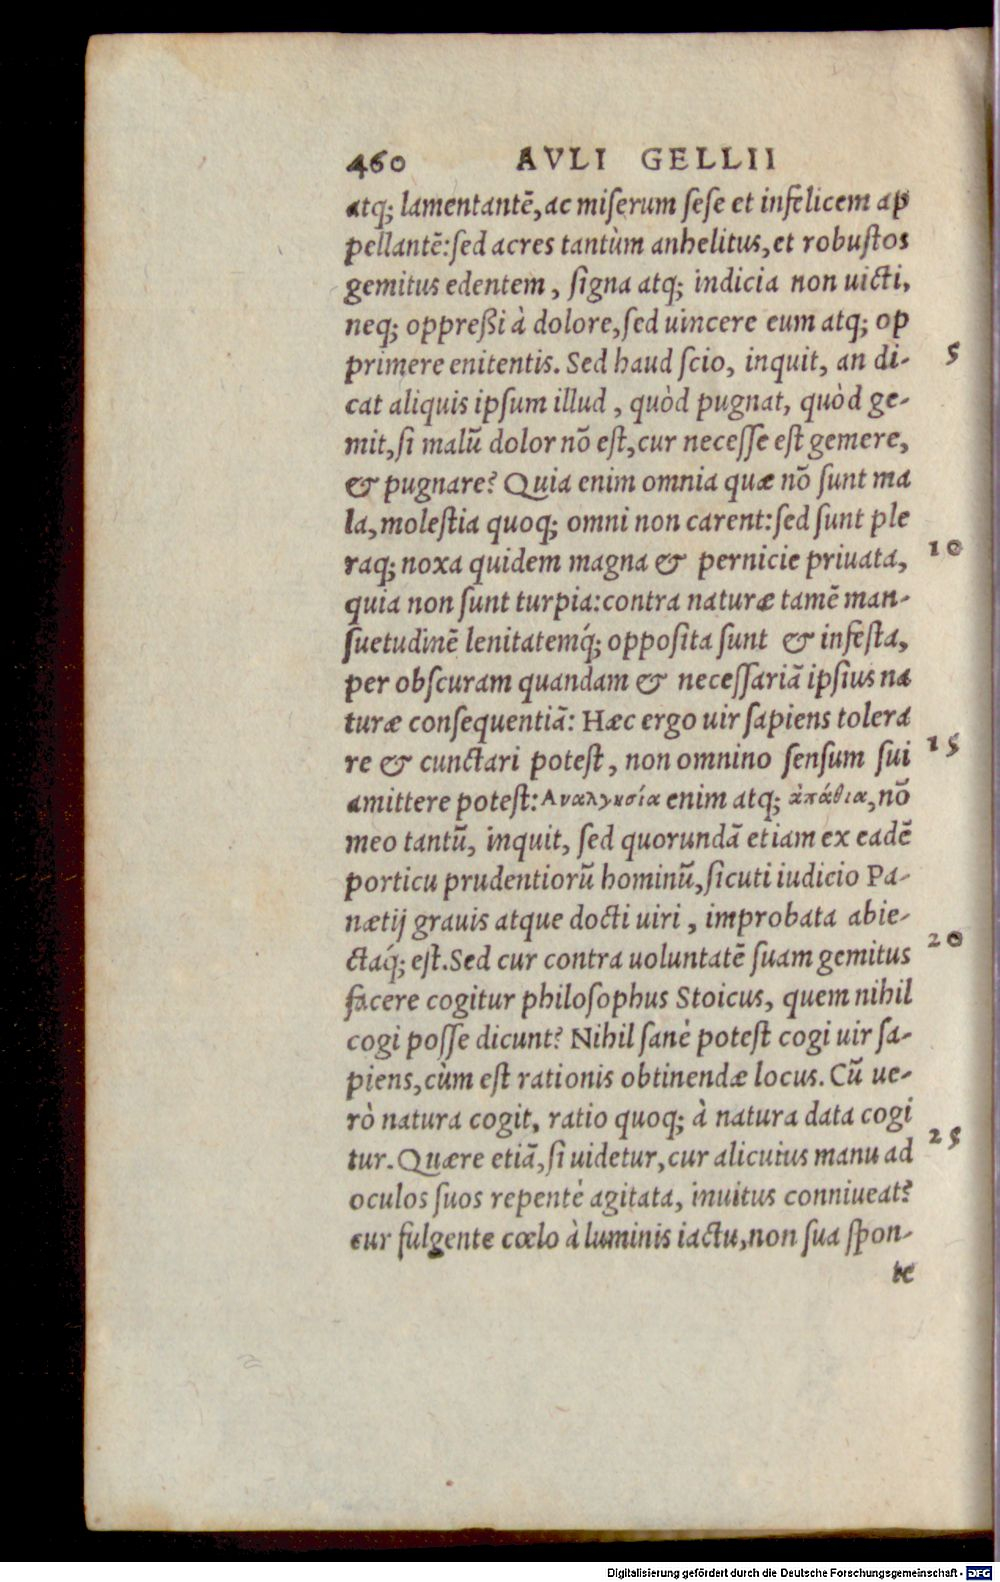 460 AVLI GELLII
atq; lamentantẽ, ac miſerum ſeſe et infelicem ap
pellantẽ: ſed acres tantùm anhelitus, et robuſtos
gemitus edentem, ſigna atq; indicia non uicti,
neq; oppreßi à dolore, ſed uincere eum atq; op
primere enitentis. Sed haud ſcio, inquit, an di- 5
cat aliquis ipſum illud, quòd pugnat, quòd ge-
mit, ſi malũ dolor nõ eſt, cur neceſſe eſt gemere,
& pugnare? Quia enim omnia quæ nõ ſunt ma
la, moleſtia quoq; omni non carent: ſed ſunt ple
raq; noxa quidem magna & pernicie priuata, 10
quia non ſunt turpia: contra naturæ tamẽ man-
ſuetudinẽ lenitatemq́; oppoſita ſunt & infeſta,
per obſcuram quandam & neceſſariã ipſius na
turæ conſequentiã: Hæc ergo uir ſapiens tolera
re & cunctari poteſt, non omnino ſenſum ſui 15
amittere poteſt: Αναλγησία enim atq; ἀπάθια, nõ
meo tantũ, inquit, ſed quorundã etiam ex eadẽ
porticu prudentiorũ hominũ, ſicuti iudicio Pa-
nætij grauis atque docti uiri, improbata abie-
ctaq́; eſt. Sed cur contra uoluntatẽ ſuam gemitus 20
facere cogitur philoſophus Stoicus, quem nihil
cogi poſſe dicunt? Nihil ſanè poteſt cogi uir ſa-
piens, cùm eſt rationis obtinendæ locus. Cũ ue-
rò natura cogit, ratio quoq; à natura data cogi
tur. Quære etiã, ſi uidetur, cur alicuius manu ad 25
oculos ſuos repentè agitata, inuitus conniueat?
cur fulgente cœlo à luminis iactu, non ſua ſpon-
te
Digitalisierung gefördert durch die Deutsche Forschungsgemeinschaft - DFG